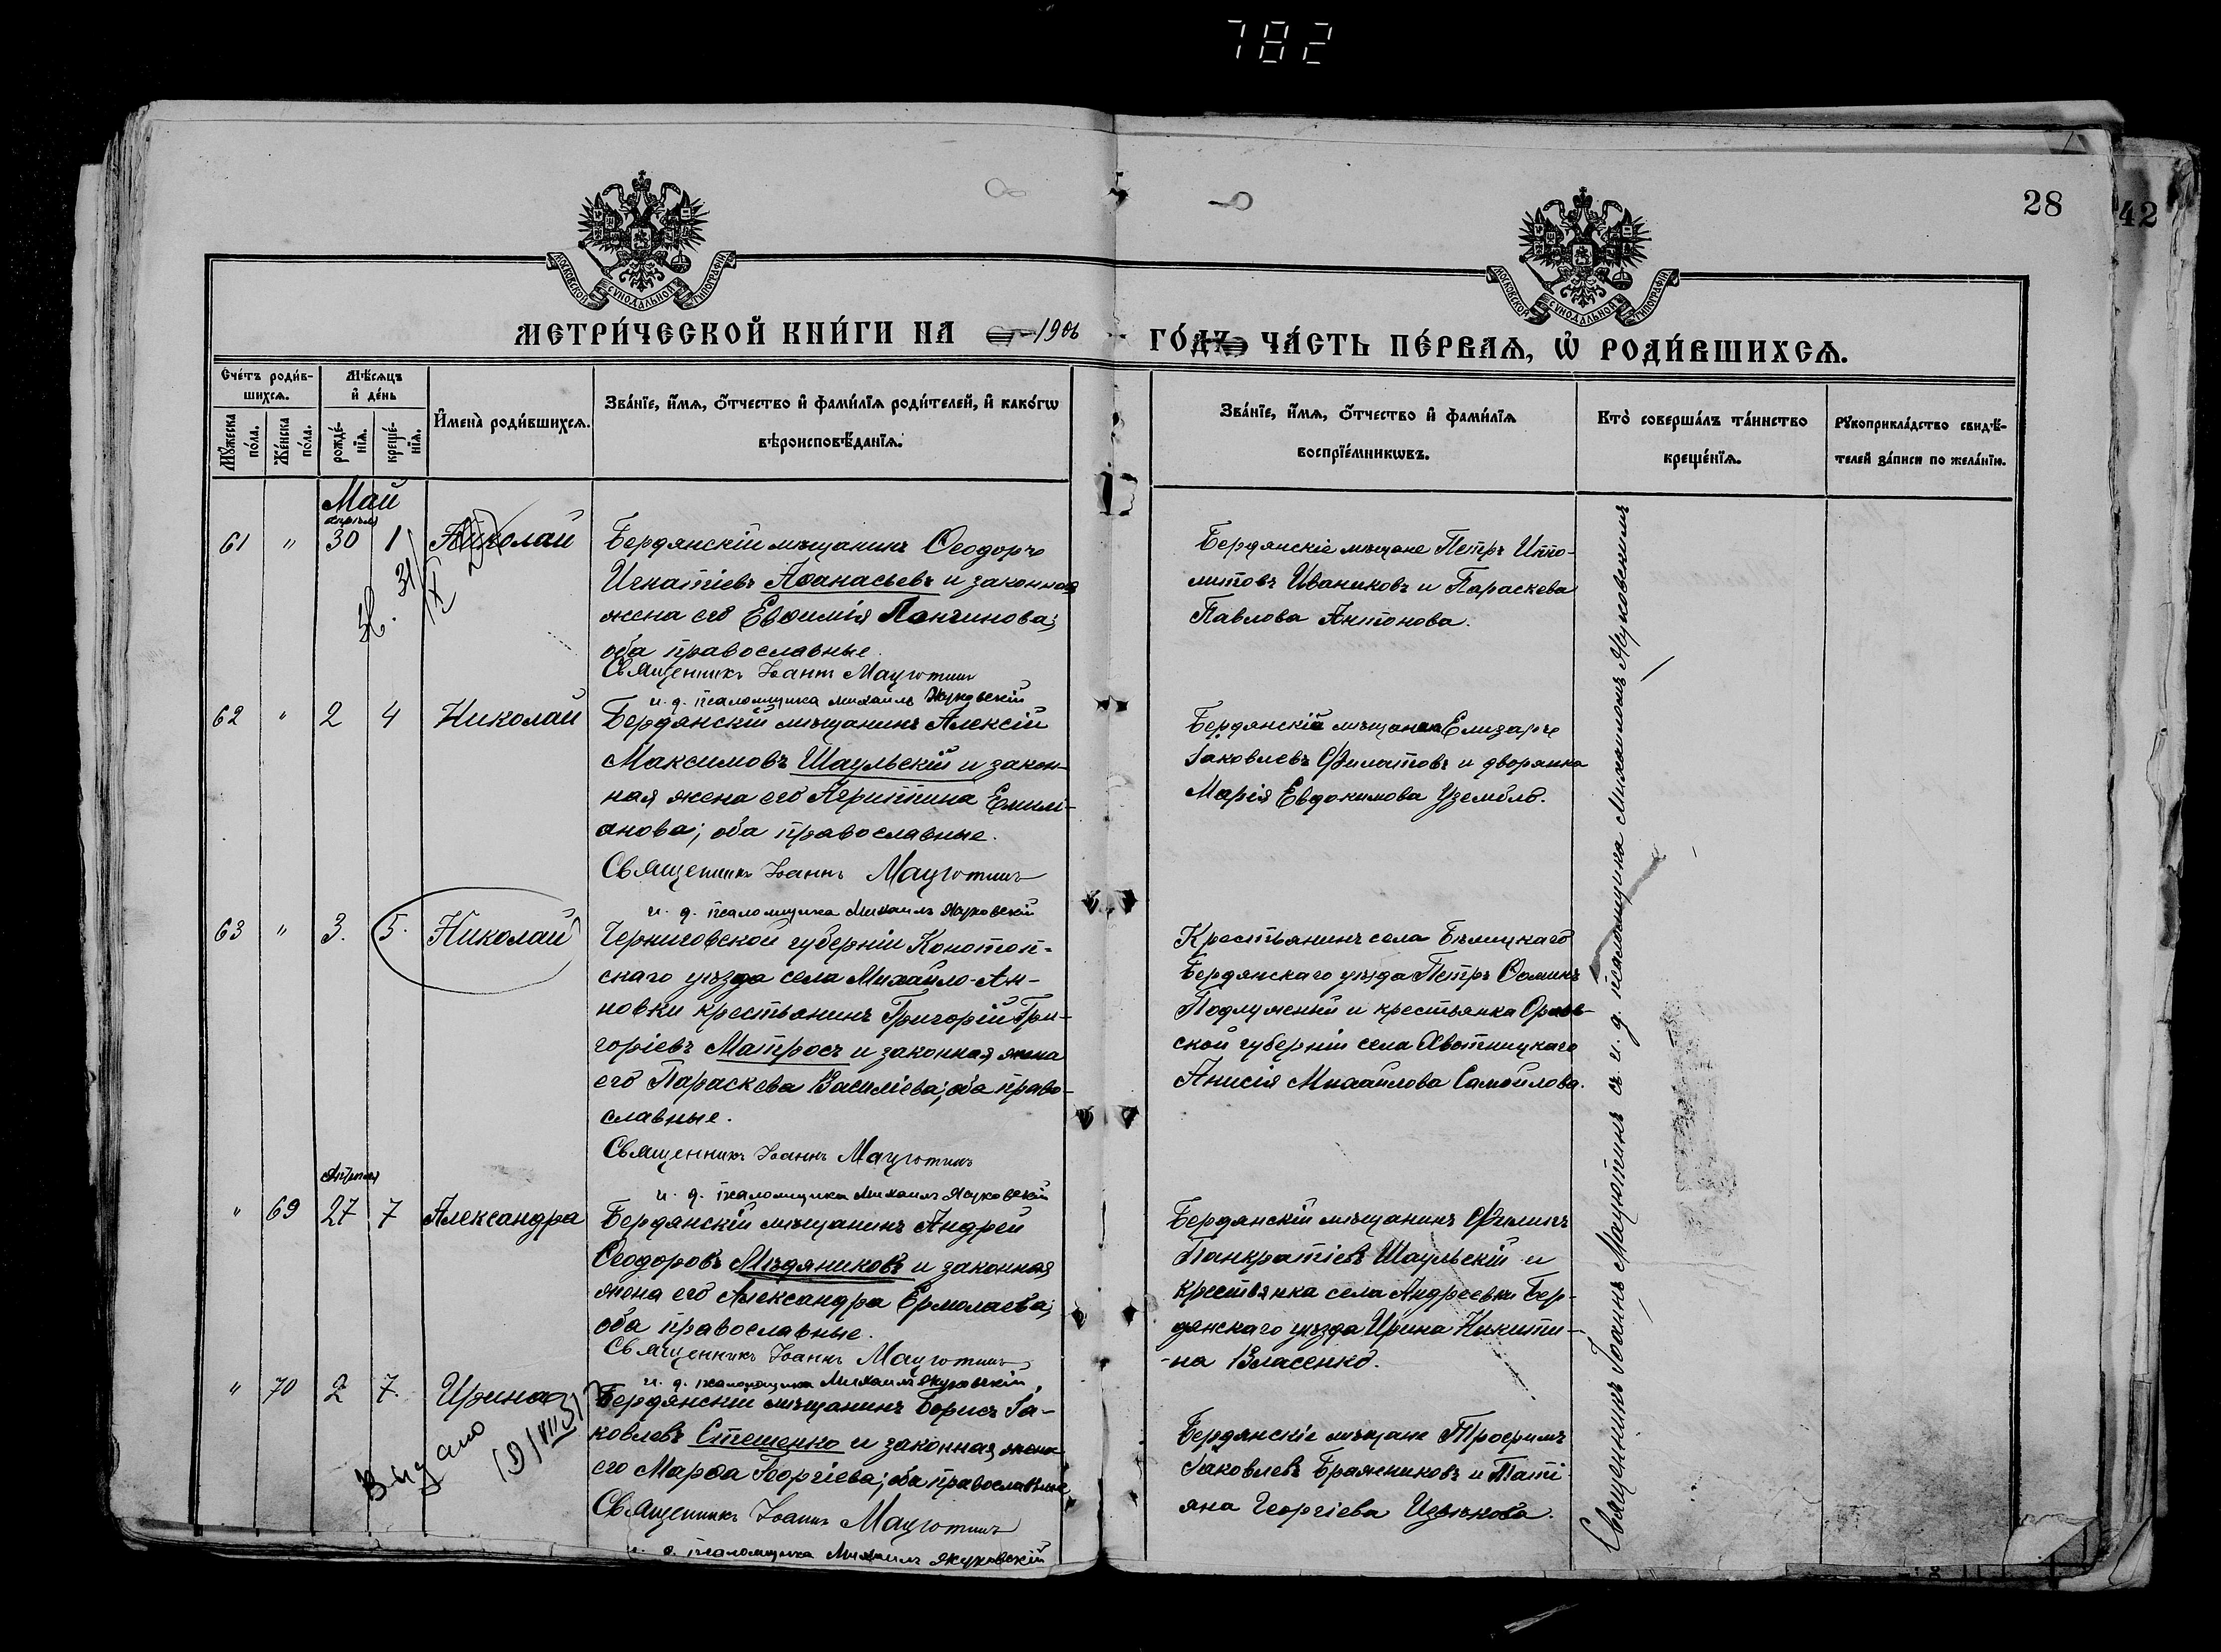 782
28
42
МОСКОВСКОЙ СѴНОДАЛЬНОЙ ТИПОГРАФІИ
МОСКОВСКОЙ СѴНОДАЛЬНОЙ ТИПОГРАФІИ
МЕТРИ́ЧЕСКОЙ КНИ́ГИ НА 1906
ГО́ДЪ ЧА́СТЬ ПЕ́РВАѦ, Ѡ҆ РОДИ́ВШИХСѦ.
Сче́тъ роди́в-
шихсѧ.
Мꙋ́жеска по́ла.
Же́нска по́ла.
Мѣ́сѧцъ
и҆ де́нь
рожде́-
нїѧ.
креще́-
нїѧ.
И҆мена̀ роди́вшихсѧ.
Зва́нїе, и҆́мѧ, ѻ҆́тчество и҆ фами́лїѧ роди́телей, и҆ како́гѡ
вѣроисповѣ́данїѧ.
Зва́нїе, и҆́мѧ, ѻ҆́тчество и҆ фами́лїѧ
воспрїе́мникѡвъ.
Кто̀ соверша́лъ та́инство
креще́нїѧ.
Рꙋкоприкла́дство свидѣ́-
телей за́писи по жела́нїю.
Май
апрѣля
61 " 30 1 Николай
Бердянскій мѣщанинъ Ѳеодоръ
Игнатіевъ Аѳанасьевъ и законная
жена его Евѳимія Лончинова;
оба православные.
Священникъ Іоаннъ Мацютинъ
и. д. псаломщика Михаилъ Жуковскій
Бердянскіе мѣщане Петръ Иппо-
литовъ Иваниковъ и Параскева
Павлова Антонова.
62 " 2 4 Николай
Бердянскій мѣщанинъ Алексій
Максимовъ Шаульскій и закон-
ная жена его Агриппина Емилі-
анова; оба православные.
Священникъ Іоаннъ Мацютинъ
и. д. псаломщика Михаилъ Жуковскій
Бердянскій мѣщанинъ Елизаръ
Іаковлевъ Филатовъ и дворянка
Марія Евдокимова Узембло.
63 " 3. 5. Николай
Черниговской губерніи Конотоп-
скаго уѣзда села Михайло-Ан-
новки крестьянинъ Григорій Гри-
горіевъ Матросъ и законная жена
его Параскева Василіева; оба право-
славные.
Священникъ Іоаннъ Мацютинъ
и. д. псаломщика Михаилъ Жуковскій
Крестьянинъ села
Бердянскаго уѣзда Петръ Ѳоминъ
и крестьянка Орлов-
ской губерніи села
Анисія Михайлова Самойлова.
Апрѣля
" 69 27 7 Александра
Бердянскій мѣщанинъ Андрей
Ѳеодоровъ Мѣдяниковъ и законная
жена его Александра Ермолаева;
оба православные.
Священникъ Іоаннъ Мацютинъ
и. д. псаломщика Михаилъ Жуковскій
Бердянскій мѣщанинъ Филипъ
Панкратіевъ Шаульскій и
крестьянка села Андреевки Бер-
дянскаго уѣзда Ирина Никити-
-на Власенко.
" 70 2 7. Ирина
Выдано 19/VIII 31
Бердянскій мѣщанинъ Борисъ Іа-
ковлевъ Стешенко и законная жена
его Марѳа Георгіева; оба православные
Священникъ Іоаннъ Мацютинъ
и. д. псаломщика Михаилъ Жуковскій
Бердянскіе мѣщане Трофимъ
Іаковлевъ Бражниковъ и Таті-
яна Георгіева
Священникъ Іоаннъ Мацютинъ съ и. д. псаломщика Михаиломъ Жуковскимъ